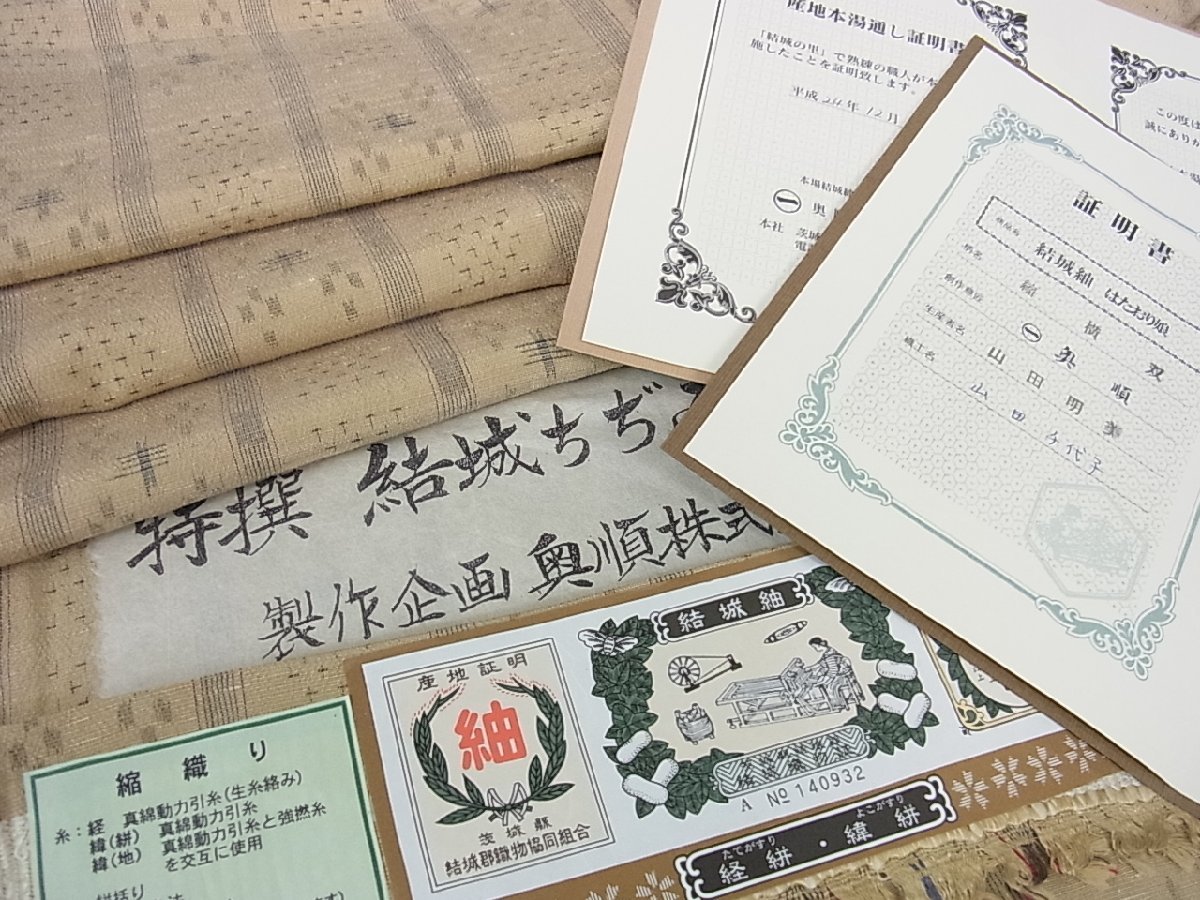 産地本湯通し証明書
「結城の里」で熟練の職人が本
施したことを証明致します。
平成26年12月
本場結城紬
㊀奥順
本社 茨城
この度は
誠にありが
証明書
結城紬 はたおり娘
㊀奥順
生産者名 山田明美
織士名 山田千代子
特撰 結城ちぢみ
製作企画 奥順株式
産地証明
紬
茨城県
結城郡織物協同組合
結城紬
A No 140932
たてがすり よこがすり
経絣・緯絣
縮織り
糸:経 真綿動力引糸(生糸絡み)
緯(絣) 真綿動力引糸
緯(地) 真綿動力引糸と強撚糸
を交互に使用